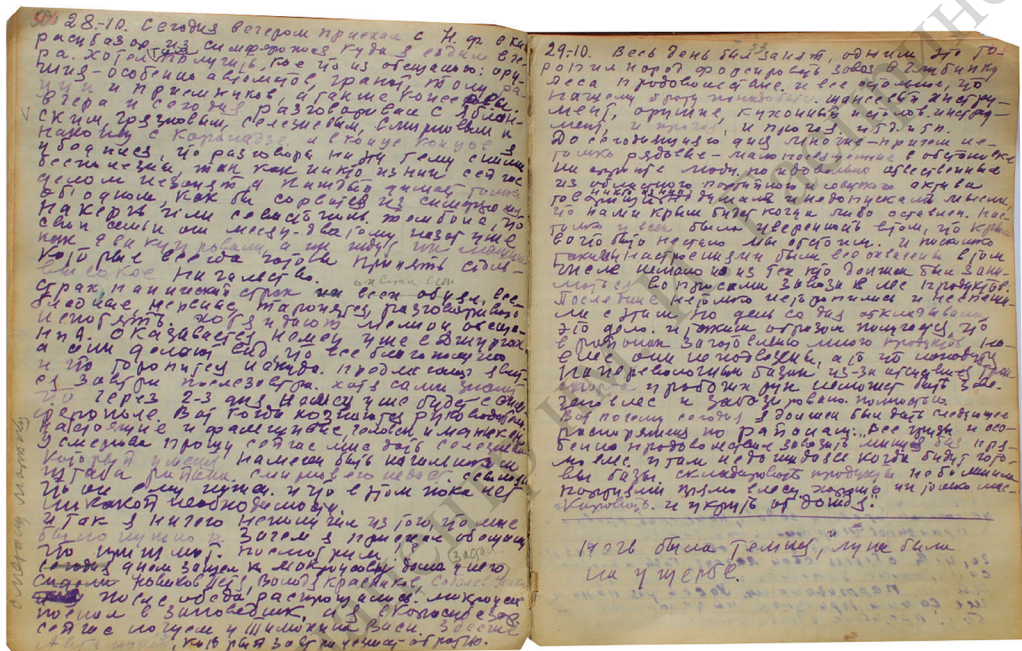 28.-10. Сегодня вечером приехал с Н. Ф. в Ка
расубазар из Симферополя куда я ездил вче
ра. Хотел получить кое что из обещаний: ору
жия-особенно автоматов, гранат, толу, ра
ции и приемников, а также консервы.
вчера и сегодня разговаривал с Яблон-
ским, грязновым, селезневым, Смирновым и
наконец с Каранадзе. и в конце концов я
убедился, что разговора на эту тему с ними
бесполезны, так как никто из них сейчас
делом не занят а каждый думает только
об одном, как бы сорваться из Симферополя
на Керчь или Севастополь. тем более, что
свои семьи они месяц-два тому назад уже
эвакуировали, а их ждут машины
которые всегда готовы принять
высокое начальство.
страх, панический страх их всех обуял, все
бледные, нервные, торопятся разговаривают
не хотят. хотя и дают мелкие обеща-
ния. Оказывается немец уже в Джурчах
а они делают вид, что все благополучно
и что торопится некуда. предлагают явит
ся завтра послезавтра. хотя сами знают
что через 2-3 дня немец уже будет в Сим
ферополе. Вот когда познаются руководители
настоящие и фальшивые головы и манекены.
У Смирнова прошу сейчас мне дать Селезнева
который у меня намечен быть начальником
штаба района. Смирнов его не дает. ссылаясь
что он ему нужен. и что в этом пока нет
никакой необходимости.
и так я ничего не получил из того, что мне
было нужно и зачем я приехал обещают
что пришлют. посмотрим.
Сегодня днем зашел к Мокроусову дома у него
сидели Новиков Петя, Володя Красников, Соболев
после обеда распрощались. Мокроусов
поехал в заповедник, а я в Карасубазар
сейчас ночуем у Тимохина Васи. Здесь и
который завтра уезжает обратно.
29.-10. Весь день был занят, одним это то-
ропил народ форсировать завоз в глубинку
леса продовольствие. и все остальное, что
нашему брату понадобится. шанцевый инстру-
мент, оружие, кухонный, столяр. инстру-
мент, и прочее, и прочее, и т.д. и т.п.
До сегодняшнего дня многие-причем не-
только рядовые-мало посвященные в обстановке
на фронте люди, но довольно ответственные
из областного партийного и советского актива
товарищи не думали и недопускали мысли,
что нами Крым будет когда либо оставлен. Нас-
только у всех была уверенность в том, что Крым
во что бы то нестало мы отстоим. и нисколько
таким настроением были все охвачены в том
числе немало и из тех кто должен был зани-
маться вопросами завоза в лес продуктов.
Последние нетолько неторопились и неспеши-
ли с этим, но день со дня откладывали
это дело. и таким образом получается, что
в районах заготовлено много продуктов но
в лес они не подвезены, а то что находится
на перевалочных базах, из-за отсутствия транс-
порта и рабочих рук неможет быть заве-
зено в лес и забазировано полностью
Вот почему сегодня я должен был дать следующее
распоряжение по районам: "Все грузы и осо-
бенно продовольствие завозить минуя баз пря-
мо в лес и там недожидаясь когда будут гото-
вы базы складировать продукты небольшими
партиями прямо в лесу хорошо их только мас-
кировать и укрыть от дождя.
Ночь была темная, и луна была
на ущербе.